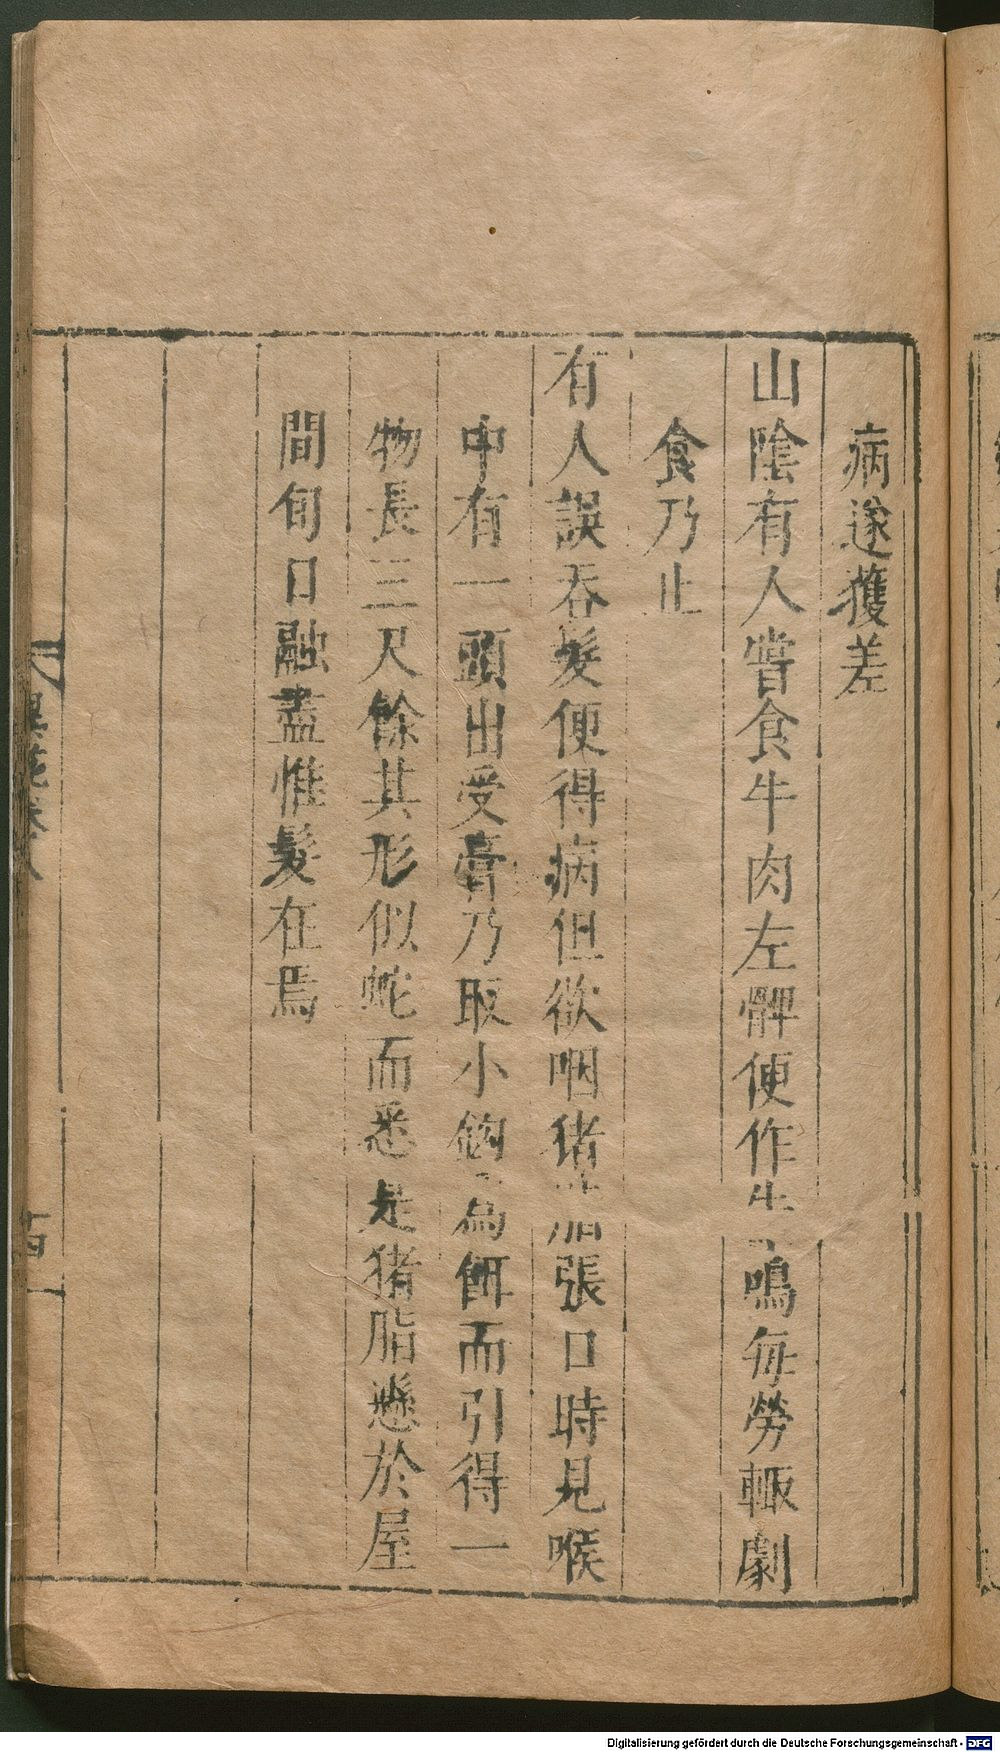 病遂獲差
山陰有人嘗食牛肉左髀便作牛鳴每勞輙劇
食乃止
有人誤吞髮便得病但欲咽猪脂張口時見喉
中有一頭出受膏乃取小鈎為餌而引得一
物長三尺餘其形似蛇而悉是猪脂懸於屋
間旬日融盡惟髮在焉
異苑卷八
Digitalisierung gefördert durch die Deutsche Forschungsgemeinschaft - DFG